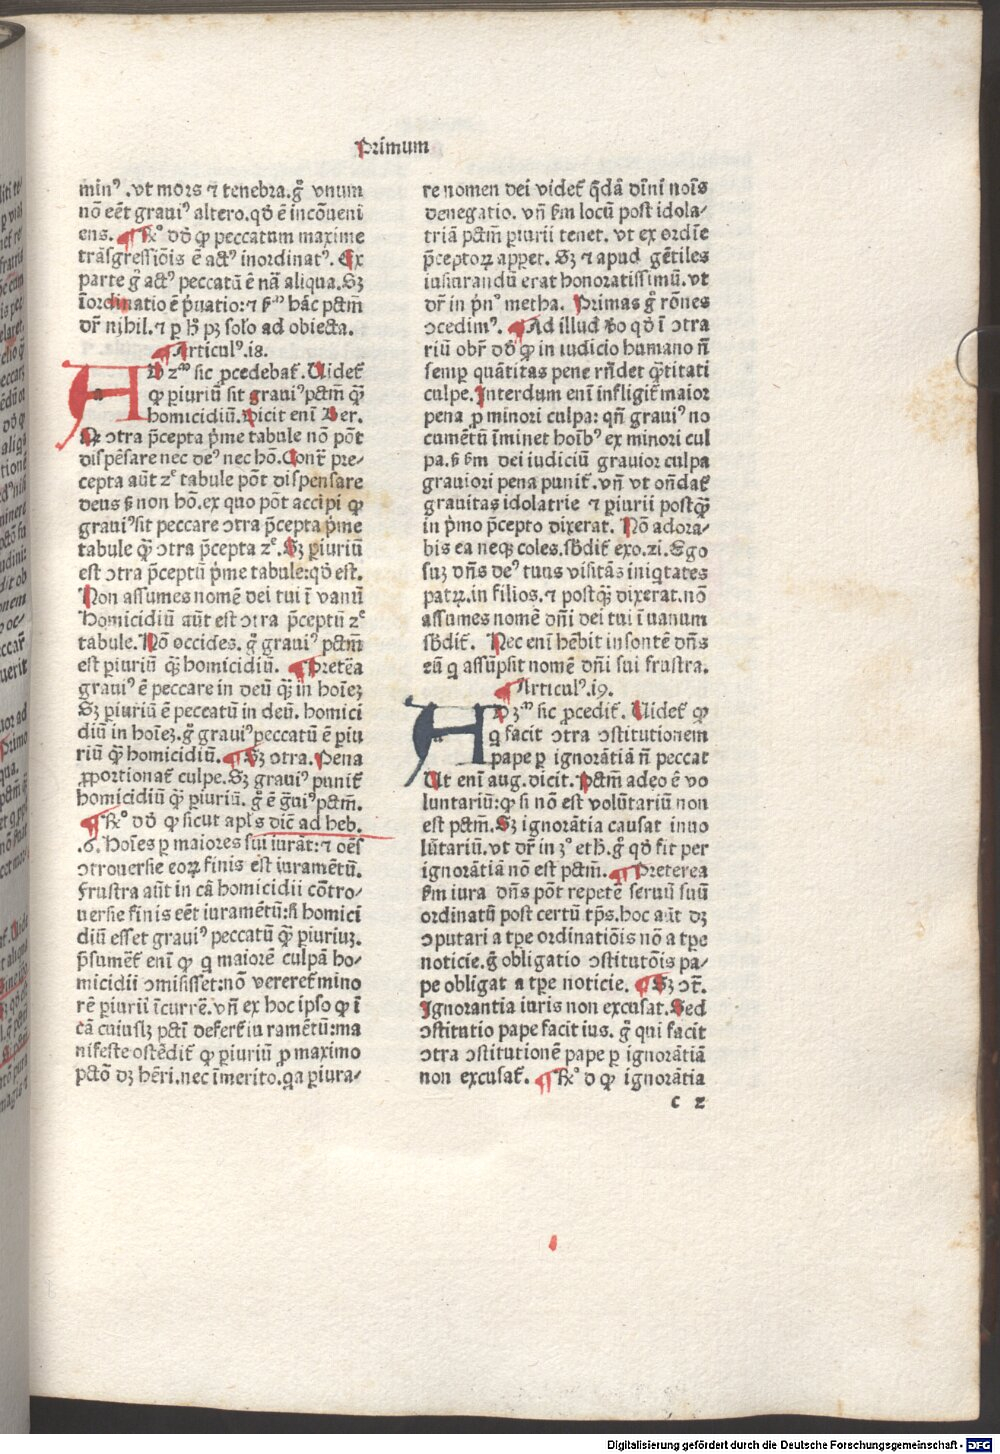 Primum
minꝰ .vt mors ⁊ tenebra.gͦ vnum
nō eēt grauiꝰ altero.qḋ ē incōueni
ens. ¶ Rͦ dō ꝙ peccatum maxime
trāsgressiōis ē actꝰ inordinatꝰ. Ex
parte gͦ actꝰ peccatū ē nā aliqua.Sꝫ
īordinatio ē p̄uatio:⁊ ẜm hāc pctm̄
dr̄ nihil.⁊ ꝑ hͦ pꝫ solo ad obiecta.
¶ Articulꝰ.18.
AD 2ᵐ sic ꝓcedebat̄. Uidet̄
a ꝙ ꝑiuriū sit grauiꝰ pctm̄ ꝙ̄
homicidiū. Dicit enī Ber.
ꝙ ↄtra p̄cepta p̄me tabule nō pōt
dispēsare nec deꝰ nec hō.Cont̄ pre⸗
cepta aūt 2ͤ tabule pōt dispensare
deus ẜ non hō.ex quo pōt accipi ꝙ
grauiꝰ sit peccare ↄtra p̄cepta p̄me
tabule ꝙ̄ ↄtra p̄cepta 2ͤ. Sꝫ ꝑiuriū
est ↄtra p̄ceptū p̄me tabule:qḋ est.
Non assumes nomē dei tui ī vanū
Homicidiū aūt est ↄtra p̄ceptū 2ͤ
tabule. Nō occides. gͦ grauiꝰ pctm̄
est ꝑiuriū ꝙ̄ homicidiū. ¶ Pretēa
grauiꝰ ē peccare in deū ꝙ̄ in hoīeꝫ
Sꝫ ꝑiuriū ē peccatū in deū. homici
diū in hoīeꝫ.gͦ grauiꝰ peccatū ē ꝑiu
riū ꝙ̄ homicidiū. ¶ Sꝫ ↄtra. Pena
ꝓportionat̄ culpe.Sꝫ grauiꝰ punit̄
homicidiū ꝙ̄ ꝑiuriū. gͦ ē gͣuiꝰ pctm̄.
¶ Rͦ dō ꝙ sicut apl̄s dic̄ ad heb.
.6. Hoīes ꝑ maiores sui iurāt:⁊ oēs
ↄtrouersie eoꝝ finis est iuramētū.
Frustra aūt in cā homicidii cōtro⸗
uersie finis eēt iuramētū:si homici
diū esset grauiꝰ peccatū ꝙ̄ ꝑiuriuꝫ.
p̄sumet̄ enī ꝙ q maiorē culpā ho⸗
micidii ↄmisisset:nō vereret̄ mino
rē ꝑiurii īcurrē.vn̄ ex hoc ipso ꝙ ī
cā cuiuslꝫ pcti̅ defert̄ iu ramētū:ma
nifeste ostēdit̄ ꝙ ꝑiuriū ꝓ maximo
pctō dꝫ hēri.nec īmerito.qa ꝑiura⸗
re nomen dei videt̄ q̄dā dīni noīs
denegatio. vn̄ ẜm locū post idola⸗
triā pctm̄ ꝑiurii tenet. vt ex ordīe
p̄ceptoꝝ apꝑet. Sꝫ ⁊ apud gētiles
iusiurandū erat honoratissimū.vt
dr̄ in pͥnº metha. Primas gͦ rōnes
ↄcedimꝰ. ¶ Ad illud ꝟo qḋ ī ↄtra
riū obr̄ dō ꝙ in iudicio humano n̄
semꝑ quātitas pene rn̄det q̄titati
culpe. Interdum enī infligit̄ maior
pena ꝓ minori culpa: qn̄ grauiꝰ no
cumētū īminet hoībꝰ ex minori cul
pa.ẜ ẜm dei iudiciū grauior culpa
grauiori pena punit̄. vn̄ vt on̄dat̄
grauitas idolatrie ⁊ ꝑiurii postꝙ̄
in p̄mo p̄cepto dixerat. Nō adora⸗
bis ea neqꝫ coles.sḃdit̄ exo.xi.Ego
suꝫ dn̄s deꝰ tuus visitās iniqtates
patꝝ.in filios.⁊ postꝙ̄ dixerat.nō
assumes nomē dn̄i dei tui ī uanum
sḃdit̄. Nec enī hēbit insontē dn̄s
eū q assūpsit nomē dn̄i sui frustra.
¶ Articulꝰ.19.
AD 3ᵐ sic ꝓcedit̄. Uidet̄ ꝙ
a q facit ↄtra ↄstitutionem
pape ꝑ ignorātiā n̄ peccat
Ut enī aug.dicit. Pctm̄ adeo ē vo
luntariū:ꝙ si nō est volūtariū non
est pctm̄.Sꝫ ignorātia causat inuo
lūtariū.vt dr̄ in 3º eth.gͦ qḋ fit per
ignorātiā nō est pctm̄. ¶ Preterea
ẜm iura dn̄s pōt repetē seruū suū
ordinatū post certū tp̄s.hoc aūt dꝫ
ↄputari a tꝑe ordinatiōis nō a tꝑe
noticie.gͦ obligatio ↄstitutōis pa⸗
pe obligat a tꝑe noticie. ¶ Sꝫ ↄt̄.
Ignorantia iuris non excusat. Sed
ↄstitutio pape facit ius. gͦ qui facit
ↄtra ↄstitutionē pape ꝑ ignorātiā
non excusat̄. ¶ Rͦ d ꝙ ignorātia
c 2
Digitalisierung gefördert durch die Deutsche Forschungsgemeinschaft - DFG